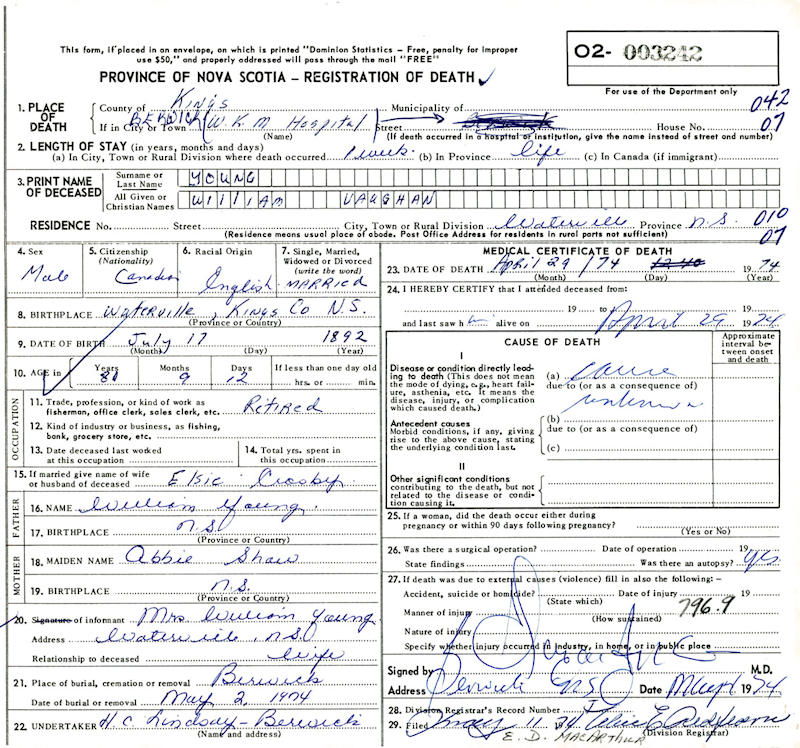 This form, if placed in an envelope, on which is printed "Dominion Statistics – Free, penalty for improper
use $50," and properly addressed will pass through the mail "FREE"
O2- 003242
PROVINCE OF NOVA SCOTIA – REGISTRATION OF DEATH
For use of the Department only
1. PLACE OF DEATH
County of Kings Municipality of 042
BERWICK
If in City or Town W.K.M Hospital Street House No. 07
(Name) (If death occurred in a hospital or institution, give the name instead of street and number)
2. LENGTH OF STAY (in years, months and days)
(a) In City, Town or Rural Division where death occurred 1 week (b) In Province life (c) In Canada (if immigrant)
3. PRINT NAME OF DECEASED
Surname or Last Name YOUNG
All Given or Christian Names WILLIAM VAUGHAN
RESIDENCE No. Street City, Town or Rural Division Waterville Province N.S. 010
(Residence means usual place of abode. Post Office Address for residents in rural parts not sufficient) 07
4. Sex Male
5. Citizenship (Nationality) Canadian
6. Racial Origin English
7. Single, Married, Widowed or Divorced (write the word) MARRIED
8. BIRTHPLACE Waterville, Kings Co N.S.
(Province or Country)
9. DATE OF BIRTH July 17 1892
(Month) (Day) (Year)
10. AGE in Years 81 Months 9 Days 12 If less than one day old
hrs. or min.
OCCUPATION
11. Trade, profession, or kind of work as
fisherman, office clerk, sales clerk, etc. Retired
12. Kind of industry or business, as fishing,
bank, grocery store, etc.
13. Date deceased last worked
at this occupation
14. Total yrs. spent in
this occupation
15. If married give name of wife
or husband of deceased Elsie Crosby
FATHER
16. NAME William Young
17. BIRTHPLACE N.S.
(Province or Country)
MOTHER
18. MAIDEN NAME Abbie Shaw
19. BIRTHPLACE N.S.
(Province or Country)
20. Signature of informant Mrs William Young
Address Waterville, N.S.
Relationship to deceased Wife
21. Place of burial, cremation or removal Berwick
Date of burial or removal May 2, 1974
22. UNDERTAKER H.C Lindsay - Berwick
(Name and address)
MEDICAL CERTIFICATE OF DEATH
23. DATE OF DEATH April 29/74 1974
(Month) (Day) (Year)
24. I HEREBY CERTIFY that I attended deceased from:
19 to April 29 1974
and last saw him alive on 19
CAUSE OF DEATH
Approximate interval between onset and death
I
Disease or condition directly leading to death (This does not mean
the mode of dying, e.g., heart failure, asthenia, etc. It means the
disease, injury, or complication
which caused death.)
(a) cause
due to (or as a consequence of)
unknown
Antecedent causes
Morbid conditions, if any, giving
rise to the above cause, stating
the underlying condition last.
(b)
due to (or as a consequence of)
(c)
II
Other significant conditions
contributing to the death, but not
related to the disease or condition causing it.
25. If a woman, did the death occur either during
pregnancy or within 90 days following pregnancy?
(Yes or No)
26. Was there a surgical operation? Date of operation 19
State findings Was there an autopsy? yes
27. If death was due to external causes (violence) fill in also the following: –
Accident, suicide or homicide? Date of injury 19
(State which)
Manner of injury 796.9
(How sustained)
Nature of injury
Specify whether injury occurred in industry, in home, or in public place
Signed by M.D.
Address Berwick N.S. Date 1974
28. Division Registrar's Record Number
29. Filed May 11 74
(Division Registrar)
E. D. MacARTHUR